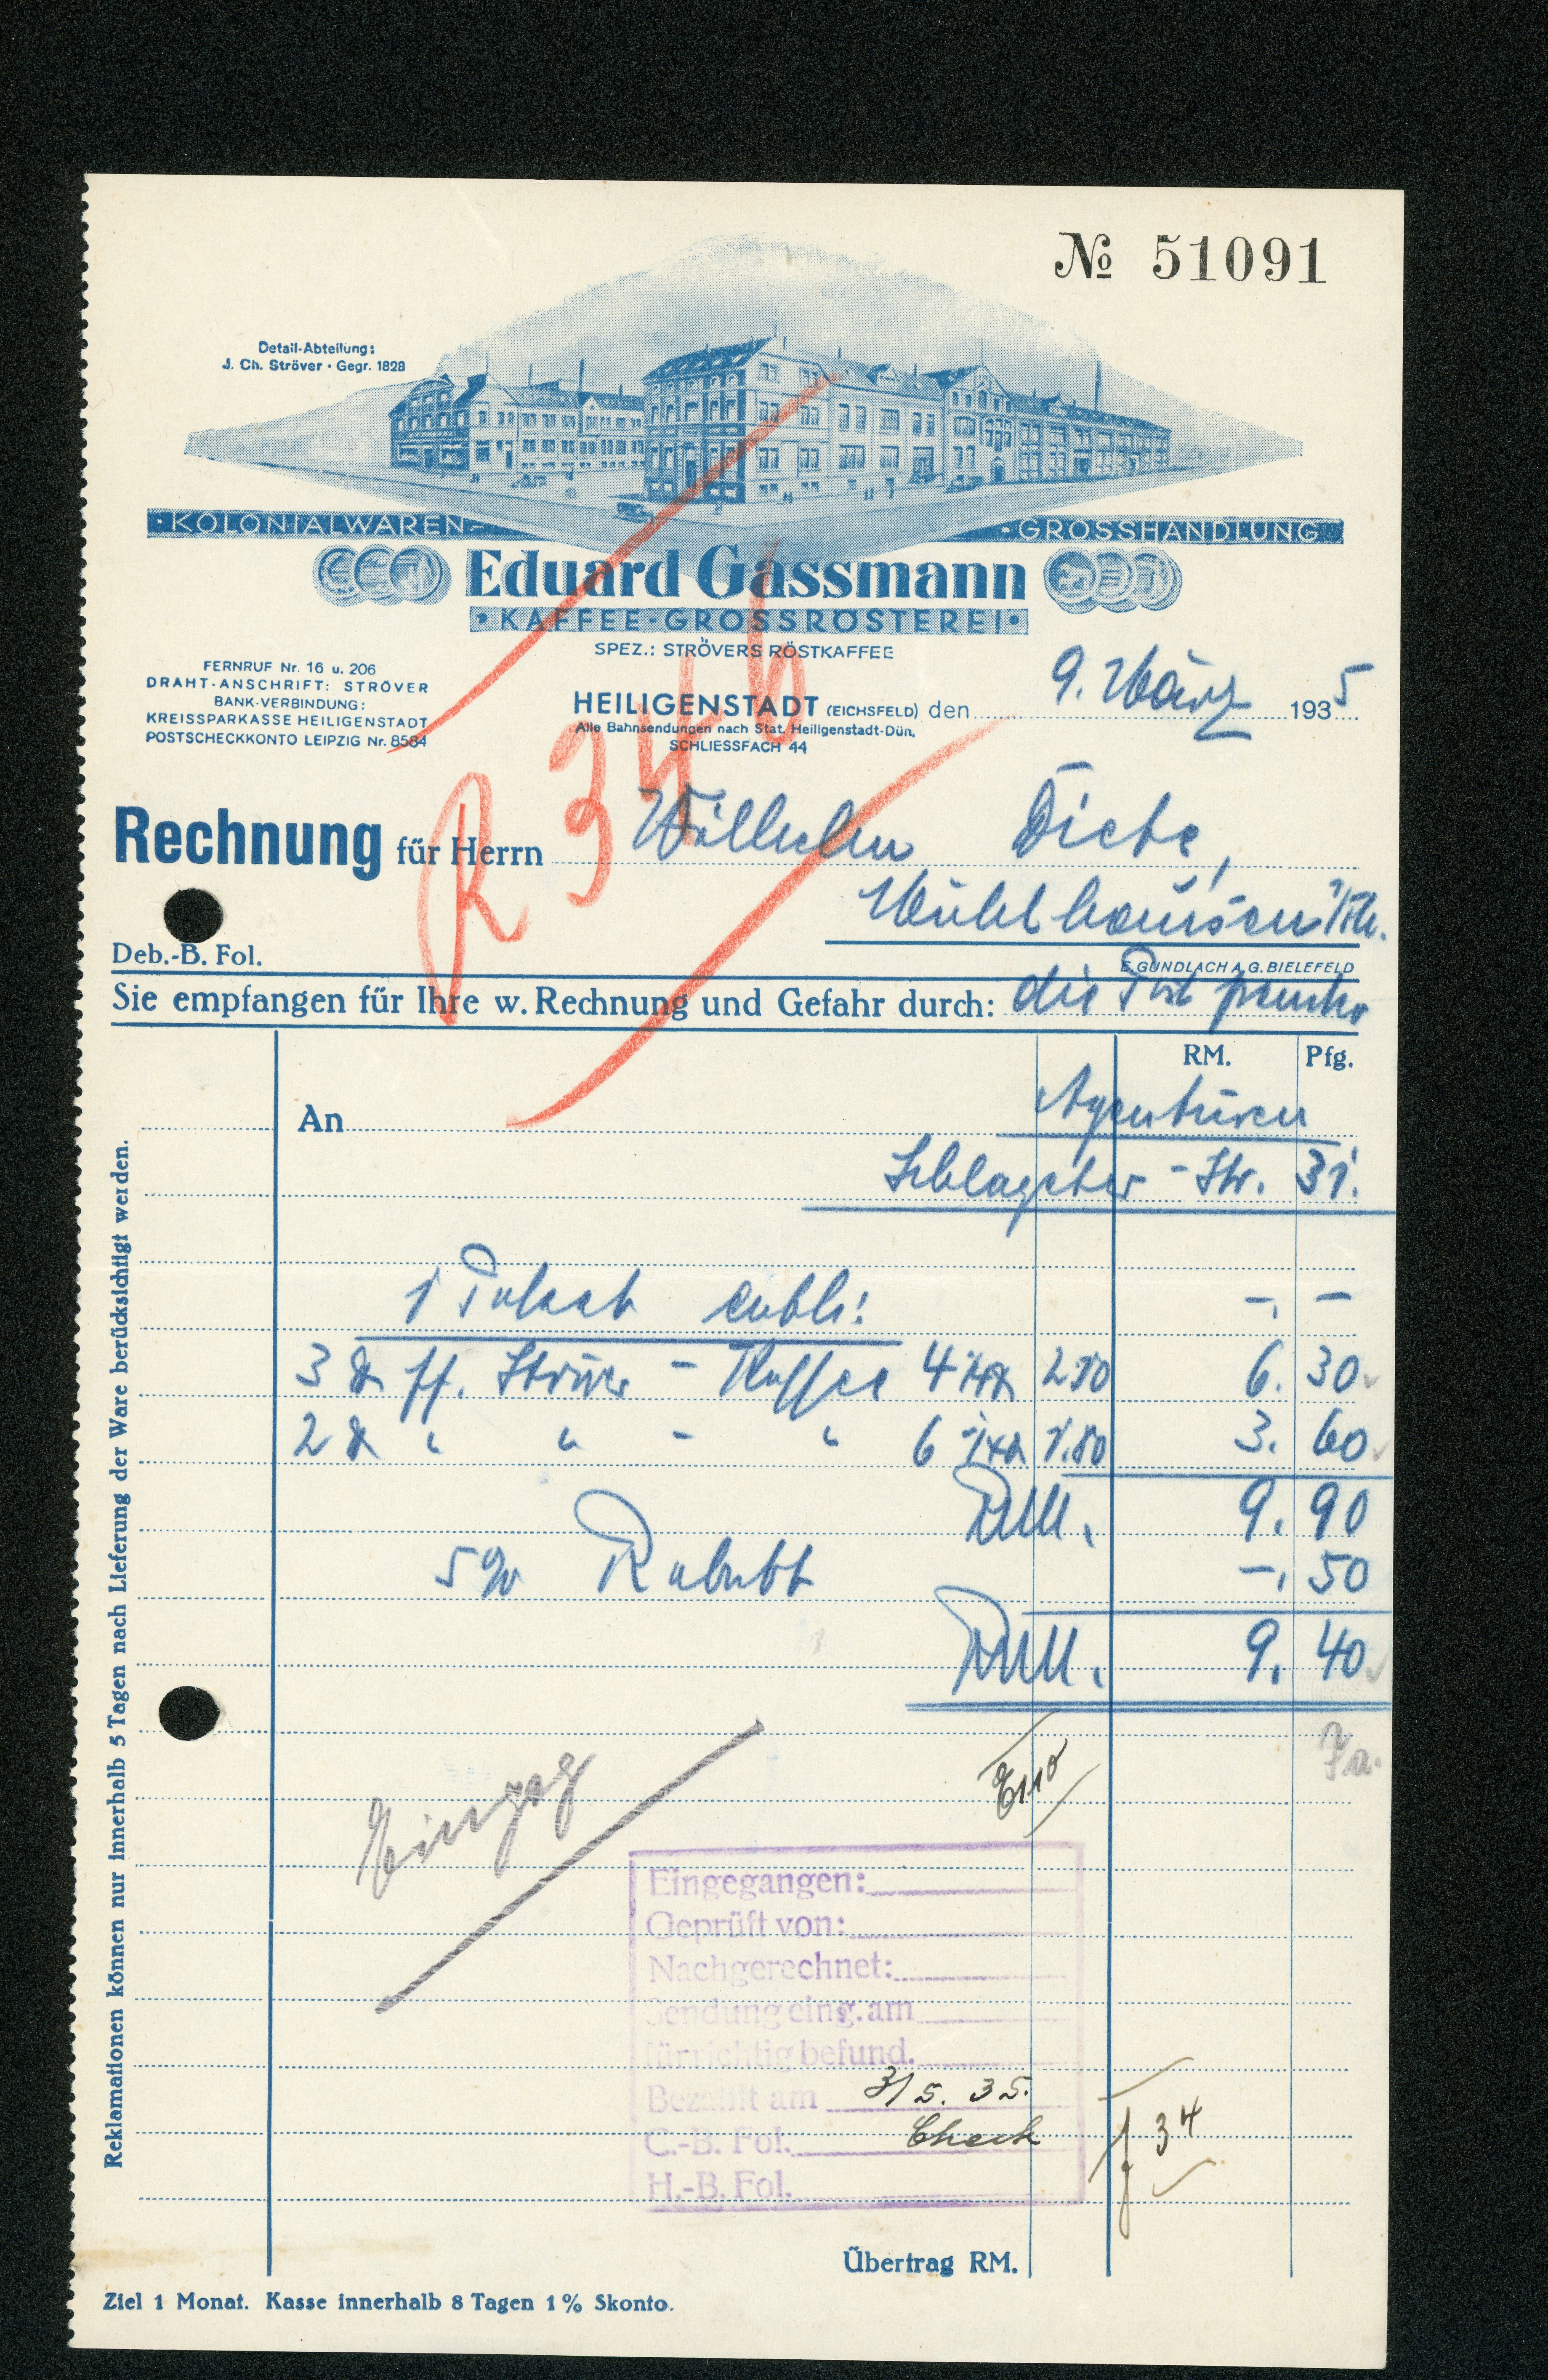 № 51091
Detail-Abteilung:
J. Ch. Ströver · Gegr. 1828
·KOLONIALWAREN- -GROSSHANDLUNG·
Eduard Gassmann
·KAFFEE-GROSSRÖSTEREI·
SPEZ.: STRÖVERS RÖSTKAFFEE
FERNRUF Nr. 16 u. 206
DRAHT-ANSCHRIFT: STRÖVER
BANK-VERBINDUNG:
KREISSPARKASSE HEILIGENSTADT
POSTSCHECKKONTO LEIPZIG Nr. 8584
HEILIGENSTADT (EICHSFELD) den 9. März 1935
Alle Bahnsendungen nach Stat. Heiligenstadt-Dün,
SCHLIESSFACH 44
R 346
Rechnung für Herrn Wilhelm
Mühlhausen i/Th.
Deb.-B. Fol.
E. GUNDLACH A. G. BIELEFELD
Sie empfangen für Ihre w. Rechnung und Gefahr durch: die Post
RM. Pfg.
An Agenturen
Schlageter-Str. 31.
1 Paket enth: -. -
3 ff. Ströver-Kaffee 4 2.10 6. 30
2 " " - " 6 1.80 3. 60
RM. 9. 90
5% Rabatt -. 50
RM. 9. 40
Eingegangen:
Geprüft von:
Nachgerechnet:
Sendung eing. am
für richtig befund.
Bezahlt am 3/5. 35.
C.-B. Fol. Check
H.-B. Fol.
f 34
Übertrag RM.
Ziel 1 Monat. Kasse innerhalb 8 Tagen 1% Skonto.
Reklamationen können nur innerhalb 5 Tagen nach Lieferung der Ware berücksichtigt werden.